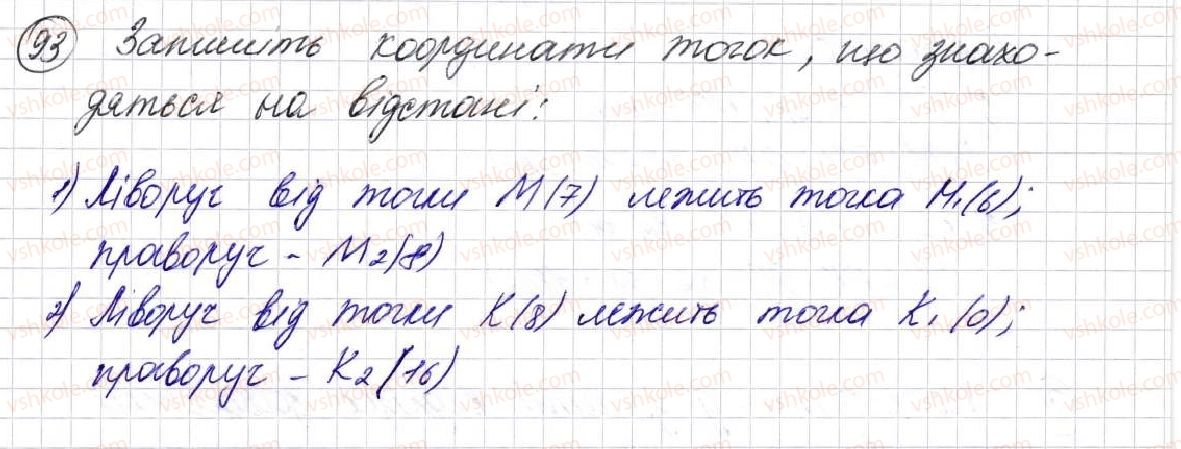 93 Запишіть координати точок, що знахо-
дяться на відстані:
1) Ліворуч від точки M(7) лежить точка M₁(6);
праворуч - M₂(8)
2) Ліворуч від точки K(8) лежить точка K₁(0);
праворуч - K₂(16)